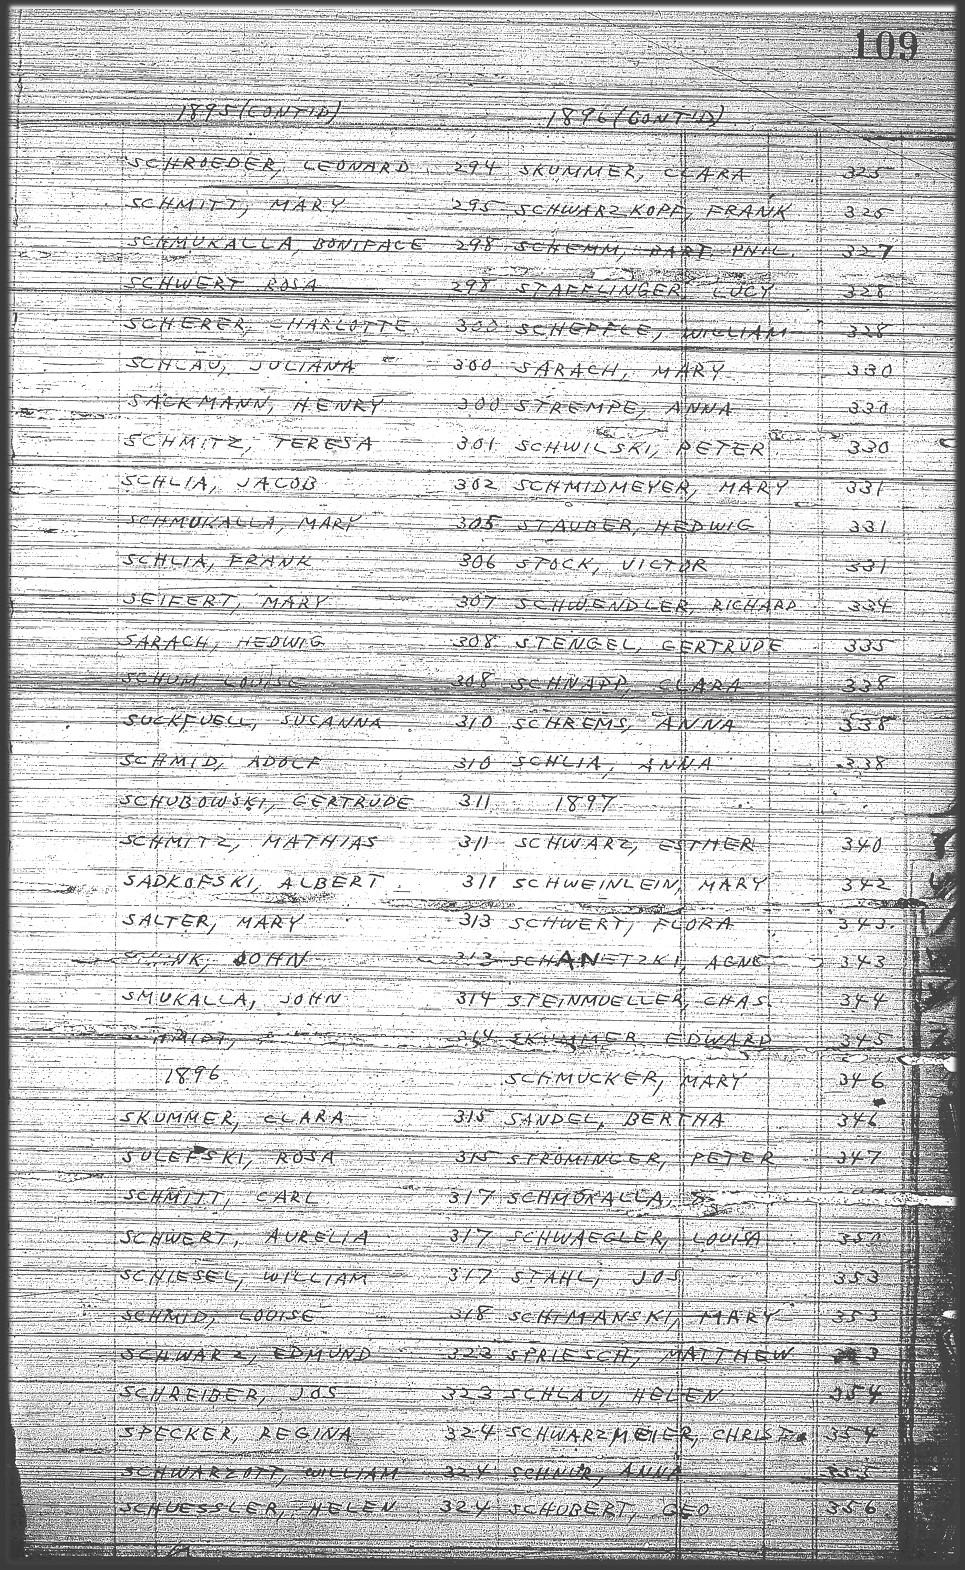 109
1895 (CONT'D)
SCHROEDER, LEONARD 294
SCHMITT, MARY 295
SCHMUKALLA, BONIFACE 298
SCHWERT ROSA 298
SCHERER, CHARLOTTE 300
SCHLAU, JULIANA 300
SACKMANN, HENRY 300
SCHMITZ, TERESA 301
SCHLIA, JACOB 302
SCHMUKALLA, MARY 305
SCHLIA, FRANK 306
SEIFERT, MARY 307
SARACH, HEDWIG 308
SCHUM, LOUISE 308
SUCKFUELL, SUSANNA 310
SCHMID, ADOLF 310
SCHUBOWSKI, GERTRUDE 311
SCHMITZ, MATHIAS 311
SADKOFSKI, ALBERT 311
SALTER, MARY 313
JOHN 313
SMUKALLA, JOHN 314
314
1896
SKUMMER, CLARA 315
SULEFSKI, ROSA 315
SCHMITT, CARL 317
SCHWERT, AURELIA 317
SCHIESEL, WILLIAM 317
SCHMID, LOUISE 318
SCHWARZ, EDMUND 323
SCHREIBER, JOS 323
SPECKER, REGINA 324
SCHWARZOTT, WILLIAM 324
SCHUESSLER, HELEN 324
1896 (CONT'D)
SKUMMER, CLARA 325
SCHWARZKOPF, FRANK 325
SCHEMM, BART. PHIL. 327
STAFFLINGER, LUCY 328
SCHEPFLE, WILLIAM 328
SARACH, MARY 330
STREMPE, ANNA 330
SCHWILSKI, PETER 330
SCHMIDMEYER, MARY 331
STAUBER, HEDWIG 331
STOCK, VICTOR 331
SCHWENDLER, RICHARD 334
STENGEL, GERTRUDE 335
SCHNAPP, CLARA 338
SCHREMS, ANNA 338
SCHLIA, ANNA 338
1897
SCHWARZ, ESTHER 340
SCHWEINLEIN, MARY 342
SCHWERT, FLORA 343
SCHANETZKI, AGNE 343
STEINMUELLER, CHAS. 344
SKUMMER, EDWARD 345
SCHMUCKER, MARY 346
SANDEL, BERTHA 346
STROMINGER, PETER 347
SCHMUKALLA,
SCHWAEGLER, LOUISA 350
STAHL, JOS 353
SCHIMANSKI, MARY 353
SPRIESCH, MATTHEW
SCHLAU, HELEN 354
SCHWARZMEIER, 354
SCHNUR, ANNA 355
SCHUBERT, GEO 356